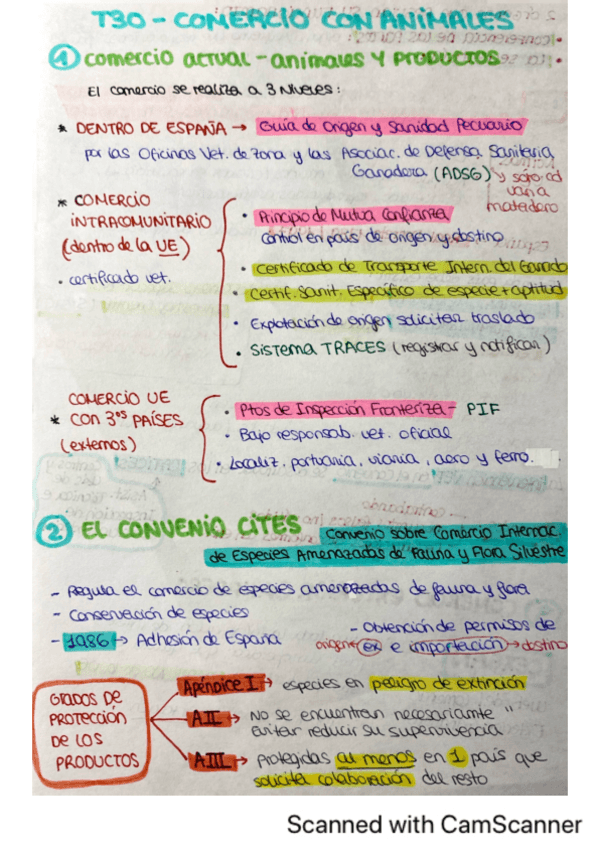 T30 - COMERCIO CON ANIMALES
1 comercio actual - animales y productos
El comercio se realiza a 3 niveles:
* DENTRO DE ESPAÑA → Guía de Origen y Sanidad Pecuario
por las Oficinas Vet. de Zona y las Asociac. de Defensa Sanitaria
Ganadera (ADSG) y sojo ad
van a
matadero
* COMERCIO
INTRACOMUNITARIO
(dentro de la UE)
· certificado vet.
· Principio de Mutua Confianza
control en país de origen y dstino
· Certificado de Transporte Intern. del Ganado
· Certif. Sanit. Específico de especie + aptitud
· Explotación de origen solicitan traslado
· SISTEMA TRACES (registrar y notifican)
COMERCIO UE
* CON 3ºS PAÍSES
(externos)
· Ptos de Inspección Fronteriza - PIF
· Bajo responsab. vet. oficial
· Localiz. portuaria, viaria, aero y ferro.
2 EL CONVENIO CITES Convenio sobre Comercio Internac.
de Especies Amenazadas de Fauna y Flora Silvestre
- Regula el comercio de especies amenazadas de fauna y flora
- Conservación de especies
- 1986 → Adhesión de España
- Obtención de permisos de
origen ex e importación → dstino
GRADOS DE
PROTECCIÓN
DE LOS
PRODUCTOS
Apéndice I → especies en peligro de extinción
A.II → No se encuentran necesariante "
evitar reducir su supervivencia
A.III → Protegidas al menos en 1 país que
solicita colaboración del resto
Scanned with CamScanner